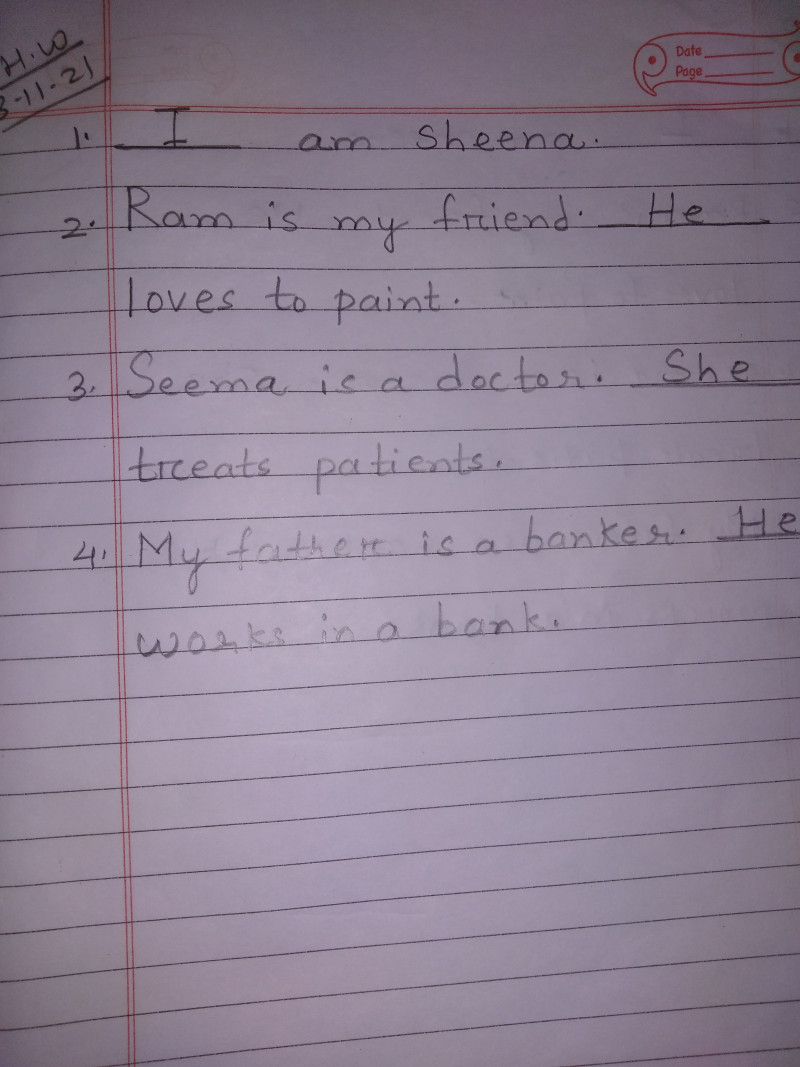 H.W
3-11-21
Date
Page
1. I am Sheena.
2. Ram is my friend. He
loves to paint.
3. Seema is a doctor. She
treats patients.
4. My father is a banker. He
works in a bank.